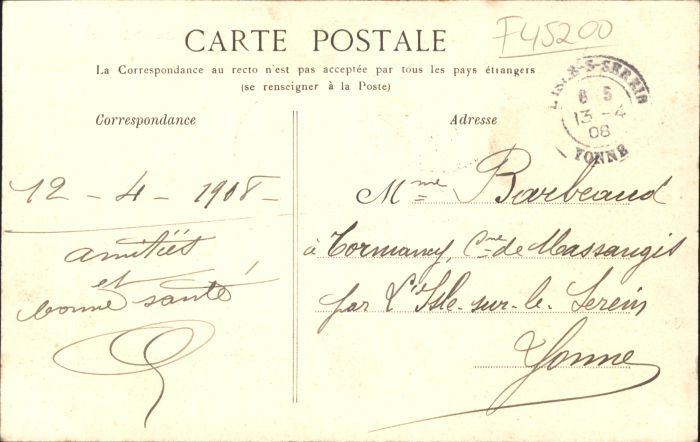 F45200
CARTE POSTALE
La Correspondance au recto n'est pas acceptée par tous les pays étrangers
(se renseigner à la Poste)
Correspondance
Adresse
L'ISLE-S-SEREIN
6 5
13 -4
08
YONNE
12 - 4 - 1908 -
amitiés
et
bonne santé
Mme Barbeaud
à Tormancy, Cne de Massangis
par L'Isle-sur-le-Serein
Yonne